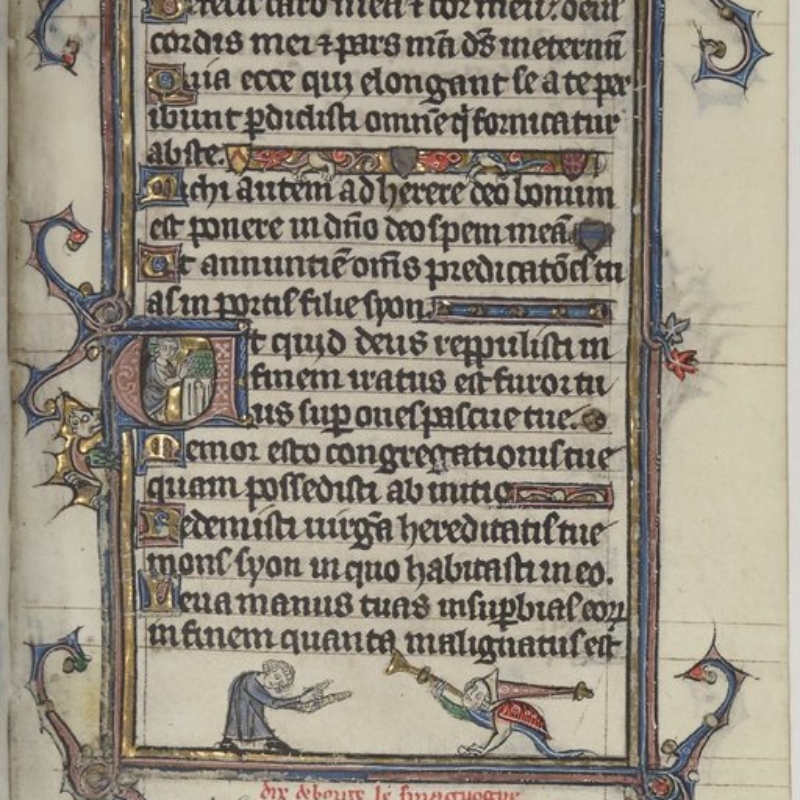 Defecit caro mea ⁊ cor meū: deus
cordis mei ⁊ pars m̄a ds̄ in eternū
Quia ecce qui elongant se a te per
ibunt ꝑdidisti omnē q̄ fornicatur
abs te.
Michi autem ad herere deo bonum
est ponere in dn̄o deo spem meā
Ut annuntiē om̄s predicatōes tu
as in portis filie syon.
Ut quid deus reppulisti in
finem iratus est furor tu
us suꝑ oues pascue tue.
Memor esto congregationis tue
quam possedisti ab initio
Redemisti uirgā hereditatis tue
mons syon in quo habitasti in eo.
Leua manus tuas in suꝑbias eoꝝ
in finem quanta malignatus est
dix deboute le sinagogue